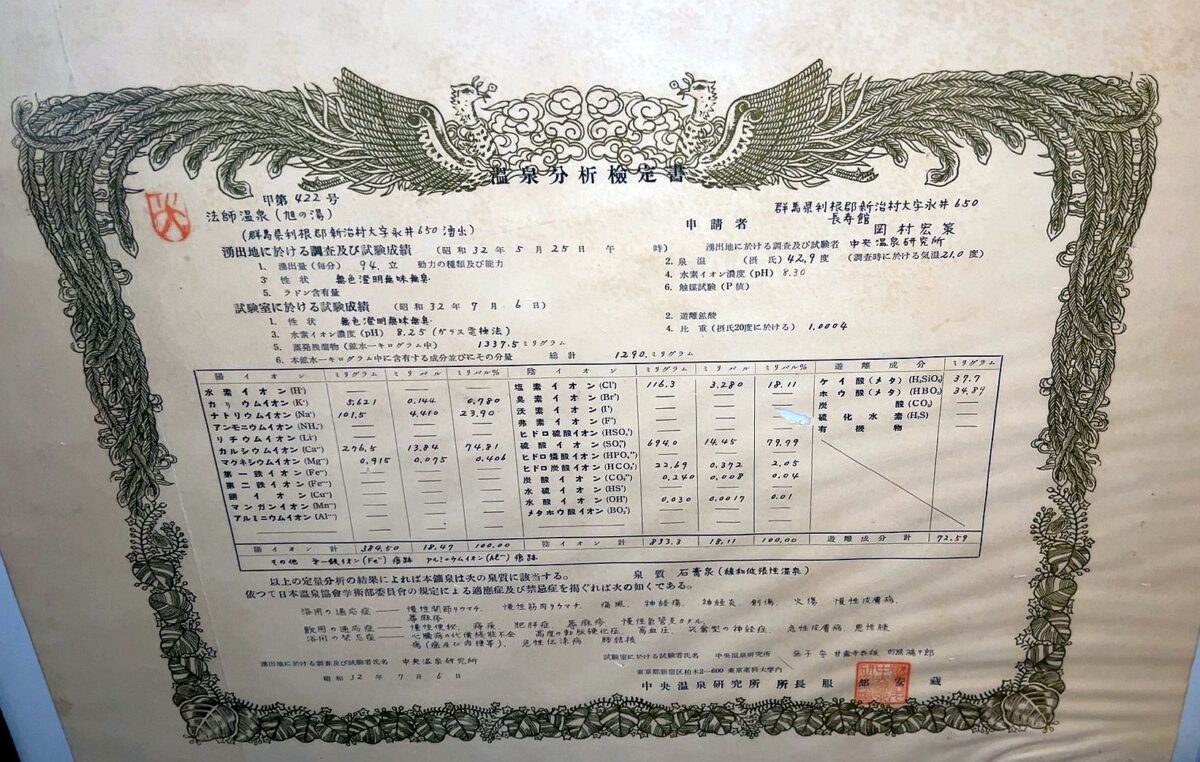 温泉分析檢定書
甲第 422 号
法師温泉(旭の湯)
(群馬県利根郡新治村大字永井650湧出)
申請者
群馬県利根郡新治村大字永井 650
長寿館
岡村宏策
湧出地に於ける調査及び試験成績 (昭和 32 年 5 月 25 日 午 時)
湧出地に於ける調査及び試験者 中央温泉研究所
1. 湧出量(毎分) 94. 立 動力の種類及び能力
2. 泉温 (摂氏) 42.9 度 (調査時に於ける気温21.0度)
3. 性状 無色澄明無味無臭
4. 水素イオン濃度(pH) 8.30
5. ラドン含有量
6. 触媒試験(P値)
試験室に於ける試験成績 (昭和 32 年 7 月 6 日)
1. 性状 無色澄明無味無臭
2. 遊離鉱酸
3. 水素イオン濃度(pH) 8.25 (ガラス電極法)
4. 比重(摂氏20度に於ける) 1.0004
5. 蒸発残渣物(鉱水一キログラム中) 1337.5 ミリグラム
6. 本鉱水一キログラム中に含有する成分並びにその分量 総計 1290. ミリグラム
陽イオン ミリグラム ミリバル ミリバル% 陰イオン ミリグラム ミリバル ミリバル% 遊離成分 ミリグラム
水素イオン(H˙) — — — 塩素イオン(Cl') 116.3 3.280 18.11 ケイ酸(メタ)(H₂SiO₃) 37.7
カリウムイオン(K˙) 5.621 0.144 0.780 臭素イオン(Br') — — — ホウ酸(メタ)(HBO₂) 34.89
ナトリウムイオン(Na˙) 101.5 4.410 23.90 沃素イオン(I') — — — 炭酸(CO₂) —
アンモニウムイオン(NH₄˙) — — — 弗素イオン(F') — — — 硫化水素(H₂S) —
リチウムイオン(Li˙) — — — ヒドロ硫酸イオン(HSO₄') — — — 有機物 —
カルシウムイオン(Ca˙˙) 276.5 13.84 74.81 硫酸イオン(SO₄'') 694.0 14.45 79.79
マグネシウムイオン(Mg˙˙) 0.915 0.075 0.406 ヒドロ燐酸イオン(HPO₄'') — — —
第一鉄イオン(Fe˙˙) — — — ヒドロ炭酸イオン(HCO₃') 22.69 0.372 2.05
第二鉄イオン(Fe˙˙˙) — — — 炭酸イオン(CO₃'') 0.240 0.008 0.04
銅イオン(Cu˙˙) — — — 水硫イオン(HS') — — —
マンガンイオン(Mn˙˙) — — — 水酸イオン(OH') 0.030 0.0017 0.01
アルミニウムイオン(Al˙˙˙) — — — メタホウ酸イオン(BO₂') — — —
陽イオン計 384.50 18.47 100.00 陰イオン計 833.3 18.11 100.00 遊離成分計 72.59
その他 第一鉄イオン(Fe˙˙)痕跡 アルミニウムイオン(Al˙˙˙)痕跡
以上の定量分析の結果によれば本鑛泉は次の泉質に該当する。 泉質 石膏泉(緩和低張性温泉)
依つて日本温泉協會学術部委員會の規定による適應症及び禁忌症を掲ぐれば次の如くである。
浴用の適応症 —— 慢性関節リウマチ、慢性筋肉リウマチ、痛風、神経痛、神経炎、創傷、火傷、慢性皮膚病、
蕁麻疹
飲用の適応症 —— 慢性便秘、痔疾、肥胖症、蕁麻疹、慢性気管支カタル、
浴用の禁忌症 —— 心臓病の代償機能不全、高度の動脈硬化症、高血圧、炎衝型の神経症、急性皮膚病、悪性腫
瘍(癌及び肉腫等)、急性伝染病、肺結核
湧出地に於ける調査及試験者氏名 中央温泉研究所
試験室に於ける試験者氏名 中央温泉研究所 益子 安 甘露寺泰雄
昭和 32 年 7 月 6 日
東京都新宿区柏木2—600 東京薬科大学内
中央温泉研究所 所長 服部安蔵